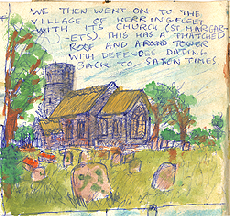 WE THEN WENT ON TO THE
VILLAGE OF HERRINGFLEET
WITH ITS CHURCH (ST MARGAR
-ETS) THIS HAS A THATCHED
ROOF AND A ROUND TOWER
WITH DEFENCE DATING
BACK TO SAXON TIMES